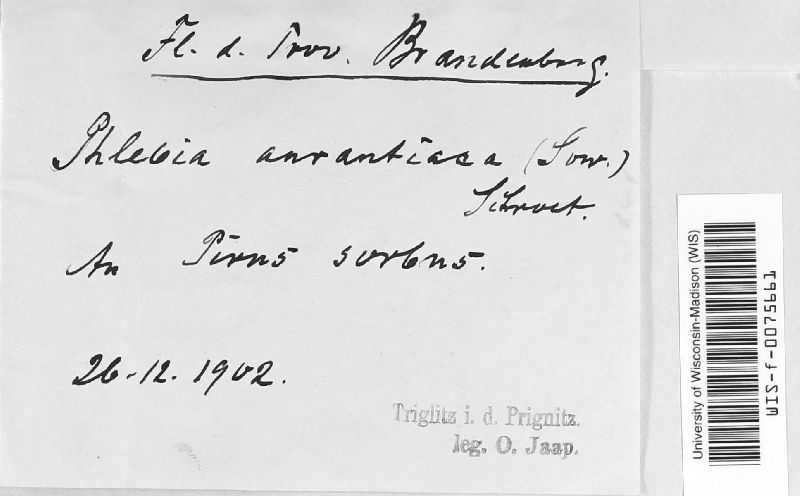 Fl. d. Prov. Brandenburg.
Phlebia aurantiaca (Sow.)
Schroet.
An Pirus sorbus.
26.12.1902.
Triglitz i. d. Prignitz.
leg. O. Jaap.
University of Wisconsin-Madison (WIS)
WIS-f-0075661